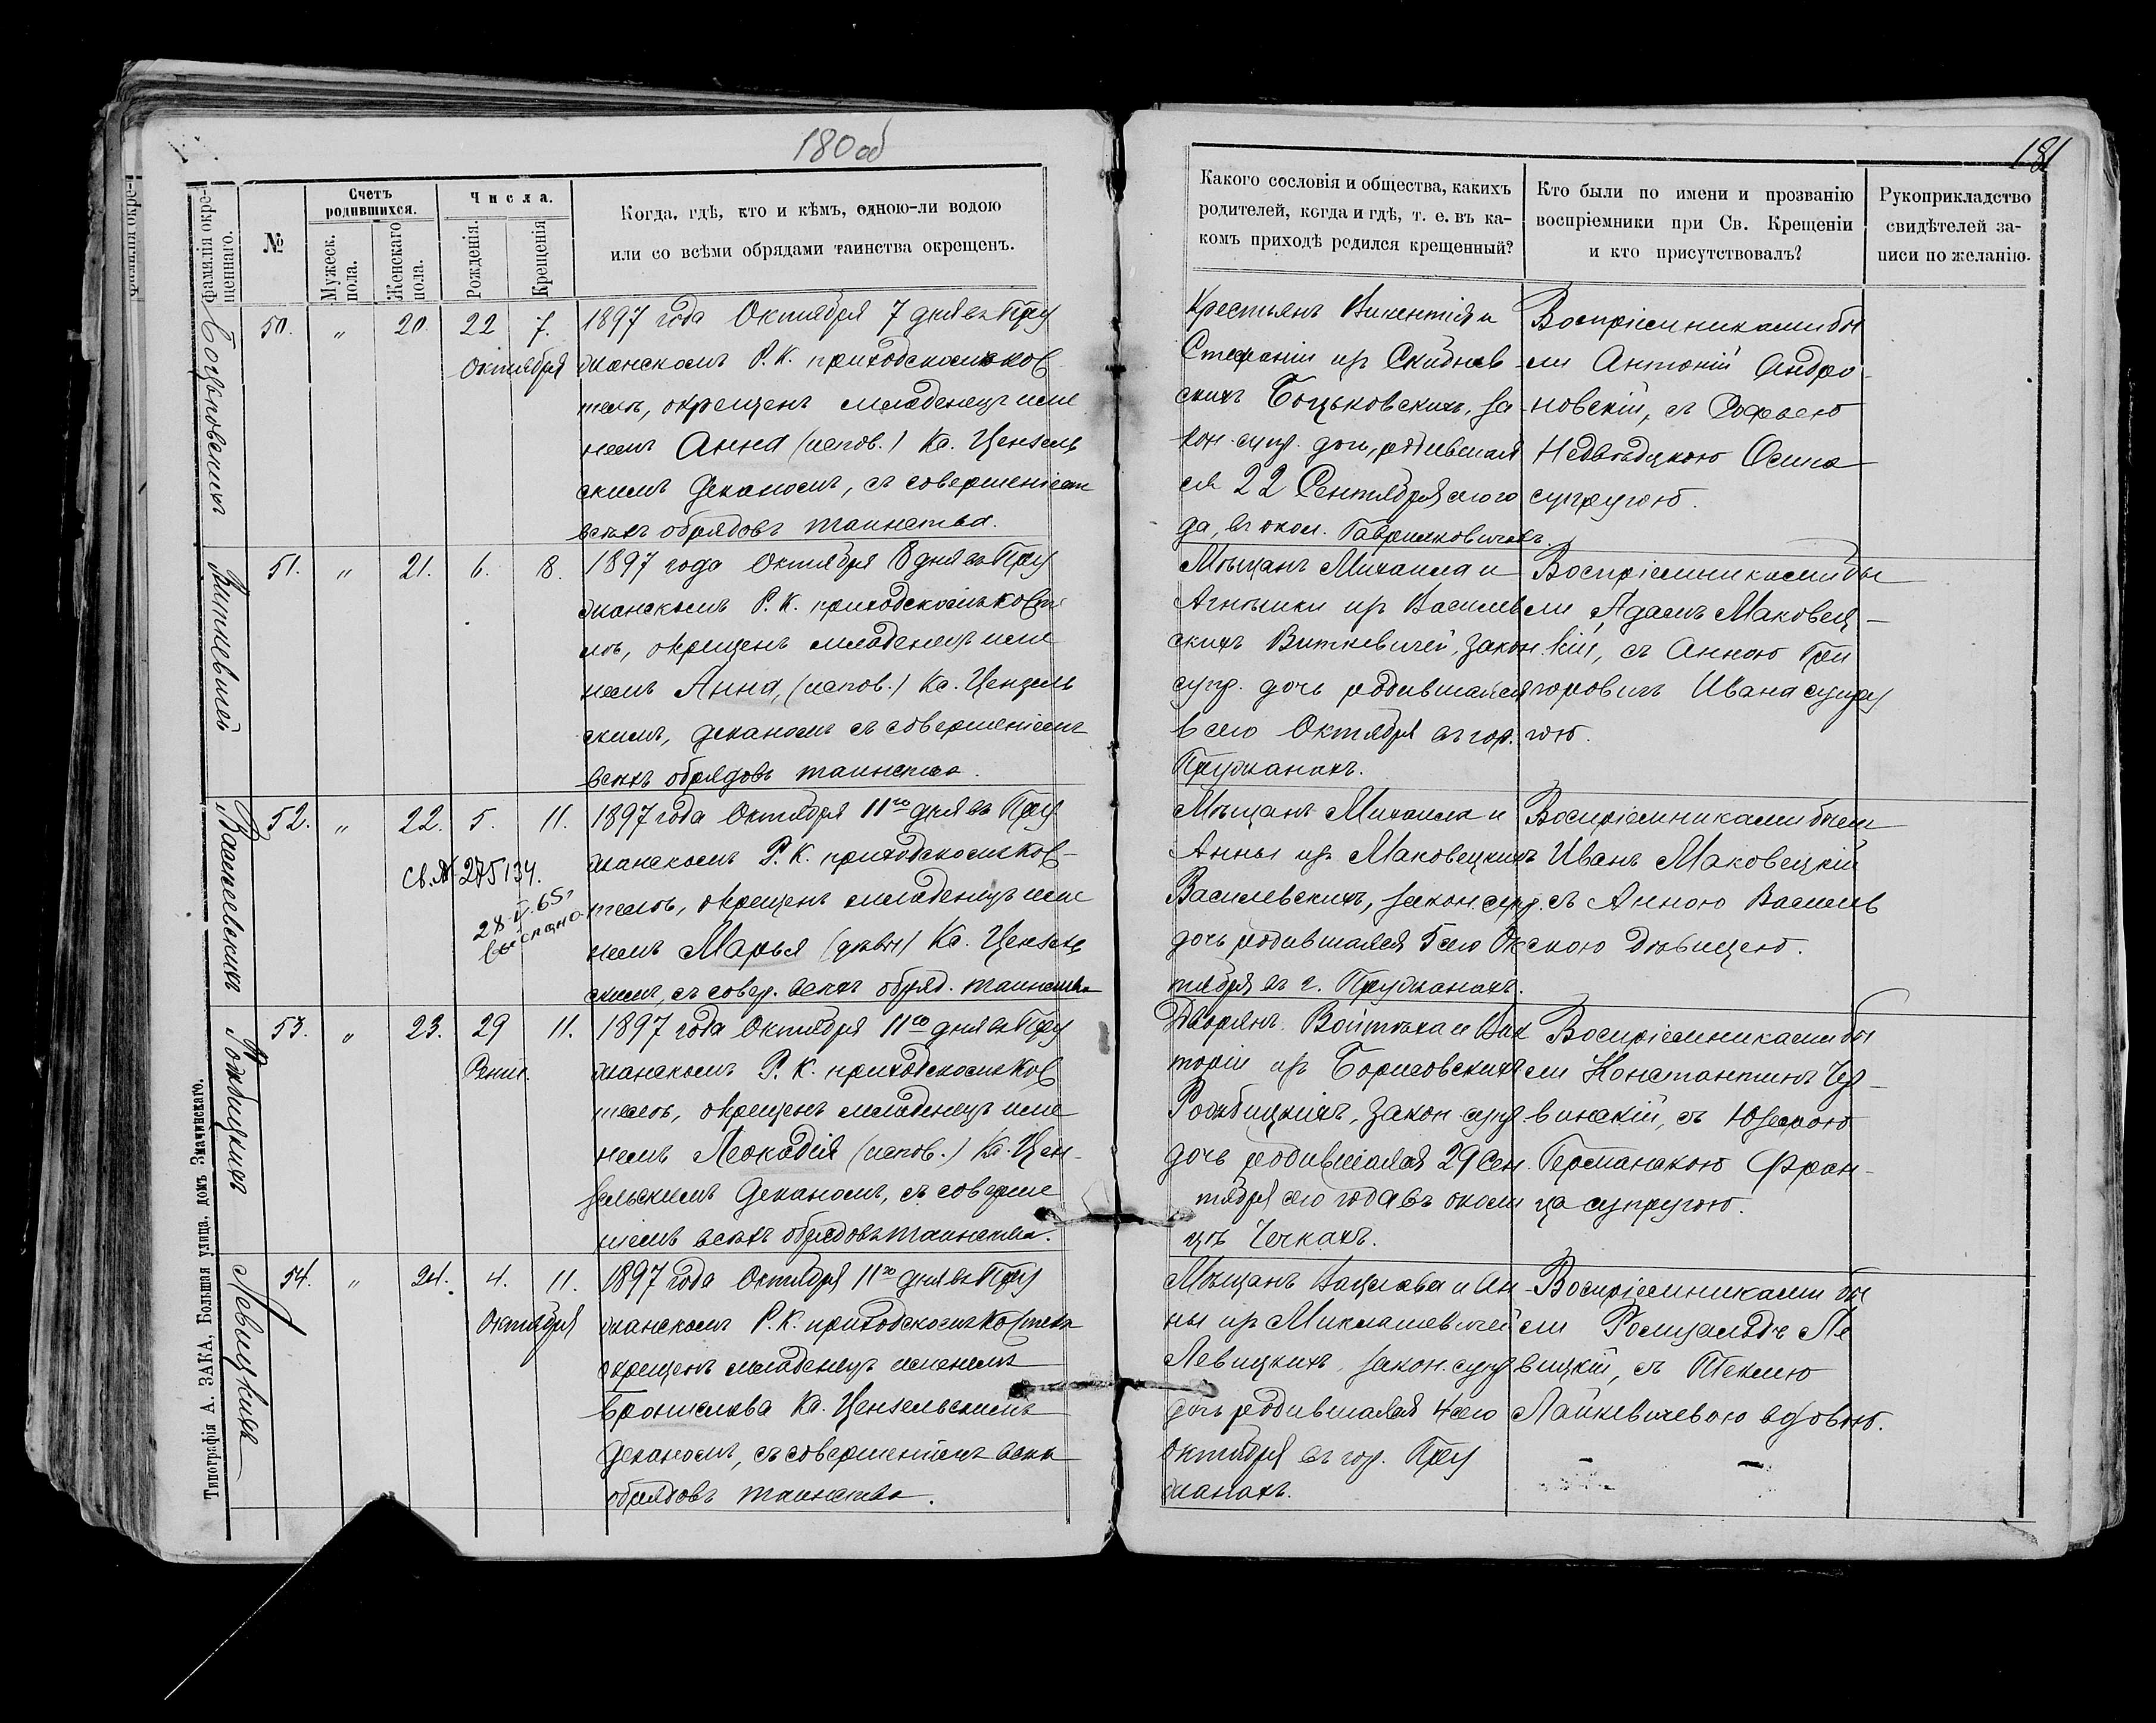 180 об
181
фамилія окре-
щеннаго.
№
Счетъ
родившихся.
Мужеск.
пола.
Женскаго
пола.
Числа.
Рожденія.
Крещенія
Когда, гдѣ, кто и кѣмъ, одною-ли водою
или со всѣми обрядами таинства окрещенъ.
Какого сословія и общества, какихъ
родителей, когда и гдѣ, т. е. въ ка-
комъ приходѣ родился крещенный?
Кто были по имени и прозванію
воспріемники при Св. Крещеніи
и кто присутствовалъ?
Рукоприкладство
свидѣтелей за-
писи по желанію.
Боцьковскихъ
50. " 20. 22 7.
Октября
1897 года Октября 7 дня въ Пру
жанскомъ Р. К. приходскомъ кос
телѣ, окрещенъ младенецъ име
немъ Анна (испов.) Кс. Цензель
скимъ Деканомъ, съ совершеніемъ
всѣхъ обрядовъ таинства.
Крестьянъ Викентія и
Стефаніи изъ Скиднев
скихъ Боцьковскихъ, за
кон. супр. дочь, родившая
ся 22 Сентября сего го
да, въ окол. Гавриловичахъ.
Воспріемниками бы
ли Антоній Андро-
новскій, съ
Осипа
супругою.
Виткевичей
51. " 21. 6. 8.
1897 года Октября 8 дня въ Пру
жанскомъ Р. К. приходскомъ косте
лѣ, окрещенъ младенецъ име
немъ Анна, (испов.) Кс. Цензель
скимъ, деканомъ съ совершеніемъ
всѣхъ обрядовъ таинства.
Мѣщанъ Михаила и
Агнѣшки изъ Василев
скихъ Виткевичей, закон.
супр. дочь родившаяся
6 сего Октября въ гор.
Пружанахъ.
Воспріемниками бы
ли Адамъ Маковец-
кій, съ Анною Гри
горовичъ Ивана супру
гою.
Василевскихъ
52. " 22. 5. 11.
Св. № 275134.
28.V.65г
выслано
1897 года Октября 11го дня въ Пру
жанскомъ Р. К. приходскомъ кос-
телѣ, окрещенъ младенецъ име
немъ Марья Кс. Цензель
скимъ, съ совер. всѣхъ обряд. таинства
Мѣщанъ Михаила и
Анны изъ Маковецкихъ
Василевскихъ, закон. супр.
дочь родившаяся 5 сего Ок
тября въ г. Пружанахъ.
Воспріемниками были
Иванъ Маковецкій
съ Анною Василев
скою Дѣвицею.
Рожбицкихъ
53. " 23. 29 11.
1897 года Октября 11го дня въ Пру
жанскомъ Р. К. приходскомъ кос
телѣ, окрещенъ младенецъ име
немъ Леокадія (испов.) Кс. Цен-
зельскимъ Деканомъ, съ соверше
ніемъ всѣхъ обрядовъ таинства.
Дворянъ Войтѣха и Вик
торіи изъ Борисовскихъ
Рожбицкихъ, закон. супр.
дочь родившаяся 29 Сен
тября сего года въ околи
цѣ Чечкахъ.
Воспріемниками бы
ли Константинъ Чер-
винскій, съ Юзефою
Германскою Фран-
ца супругою.
Левицкихъ
54. " 24. 4. 11.
Октября
1897 года Октября 11го дня въ Пру
жанскомъ Р. К. приходскомъ костелѣ
окрещенъ младенецъ именемъ
Бронислава Кс. Цензельскимъ
Деканомъ, съ совершеніемъ всѣхъ
обрядовъ таинства.
Мѣщанъ Вацлава и Ан
ны изъ Миклашевичей
Левицкихъ закон. супр.
дочь родившаяся 4 сего
Октября въ гор. Пру
жанахъ.
Воспріемниками бы
ли Ромуальдъ Ле
вицкій, съ Теклею
Лайкевичевою вдовою.
Типографія А. ЗАКА, Большая улица, домъ Змачинскаго.